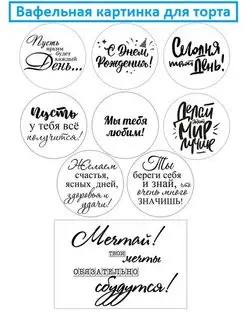 Вафельная картинка для торта
Пусть
ярким
будет
каждый
День...
С Днём
Рождения!
Сегодня
твой
День!
Пусть
у тебя всё
получится!
Мы тебя
любим!
Делай
этот
МИР
лучше
Желаем
счастья,
ясных дней,
здоровья и
удачи!
Ты
береги себя
и знай, что
очень много
ЗНАЧИШЬ!
Мечтай!
ТВОИ
мечты
ОБЯЗАТЕЛЬНО
сбудутся!